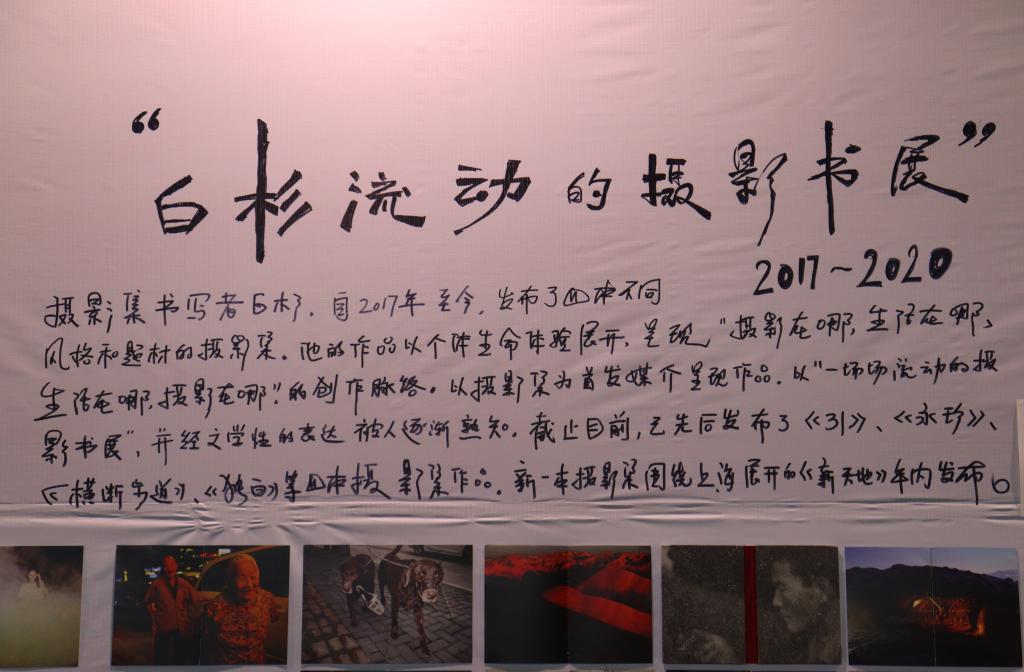 “白杉流动的摄影书展”
2017~2020
摄影集书写者白杉，自2017年至今，发布了四本不同
风格和题材的摄影集。他的作品以个体生命体验展开，呈现“摄影在哪，生活在哪、
生活在哪，摄影在哪”的创作脉络。以摄影集为首发媒介呈现作品，以“一场场流动的摄
影书展”，并经文学性的表达被人逐渐熟知。截止目前，已先后发布了《引》、《永珍》、
《横断步道》、《独白》等四本摄影集作品。新一本摄影集围绕上海展开的《新天地》年内发布。